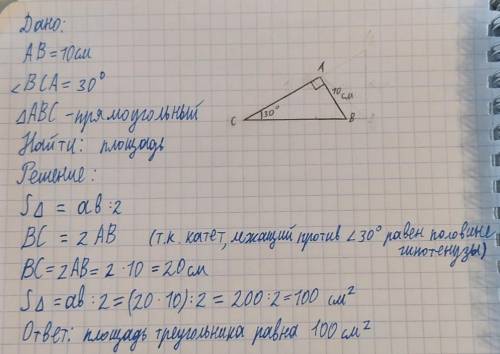 Дано:
AB = 10см
∠BCA = 30°
△ABC - прямоугольный
Найти: площадь
Решение:
S△ = ab:2
BC = 2AB (т.к. катет, лежащий против ∠30° равен половине
гипотенузы)
BC = 2AB = 2 · 10 = 20 см
S△ = ab : 2 = (20 · 10) : 2 = 200 : 2 = 100 см²
Ответ: площадь треугольника равна 100 см²
A
10 см
C
30°
B